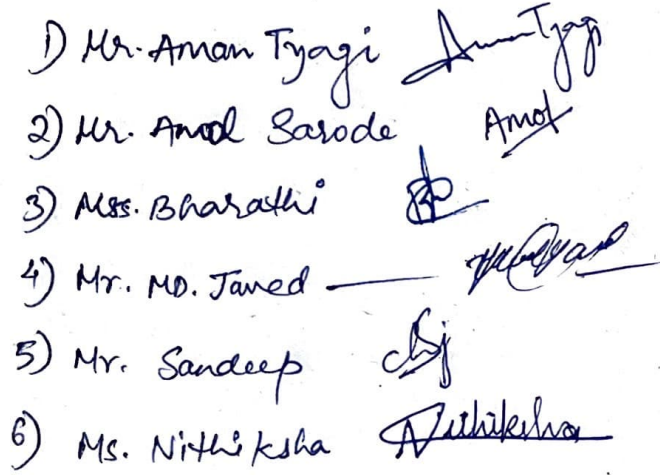 1) Mr. Aman Tyagi Aman Tyagi
2) Mr. Amol Sarode Amol
3) Mss. Bharathi
4) Mr. MD. Javed —
5) Mr. Sandeep
6) Ms. Nithiksha Nithiksha